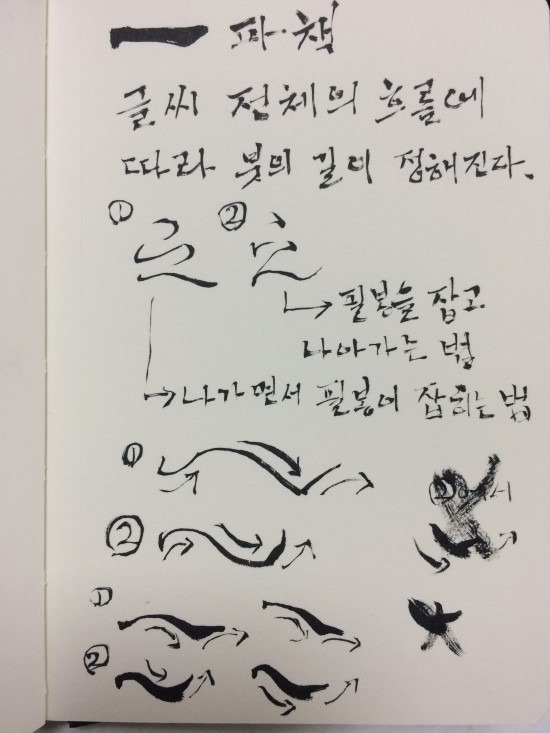 파·책
글씨 전체의 흐름에
따라 붓의 길이 정해진다.
① ②
필봉을 잡고
나아가는 법
나가면서 필봉이 잡히는 법
①
② ②에서
①
②